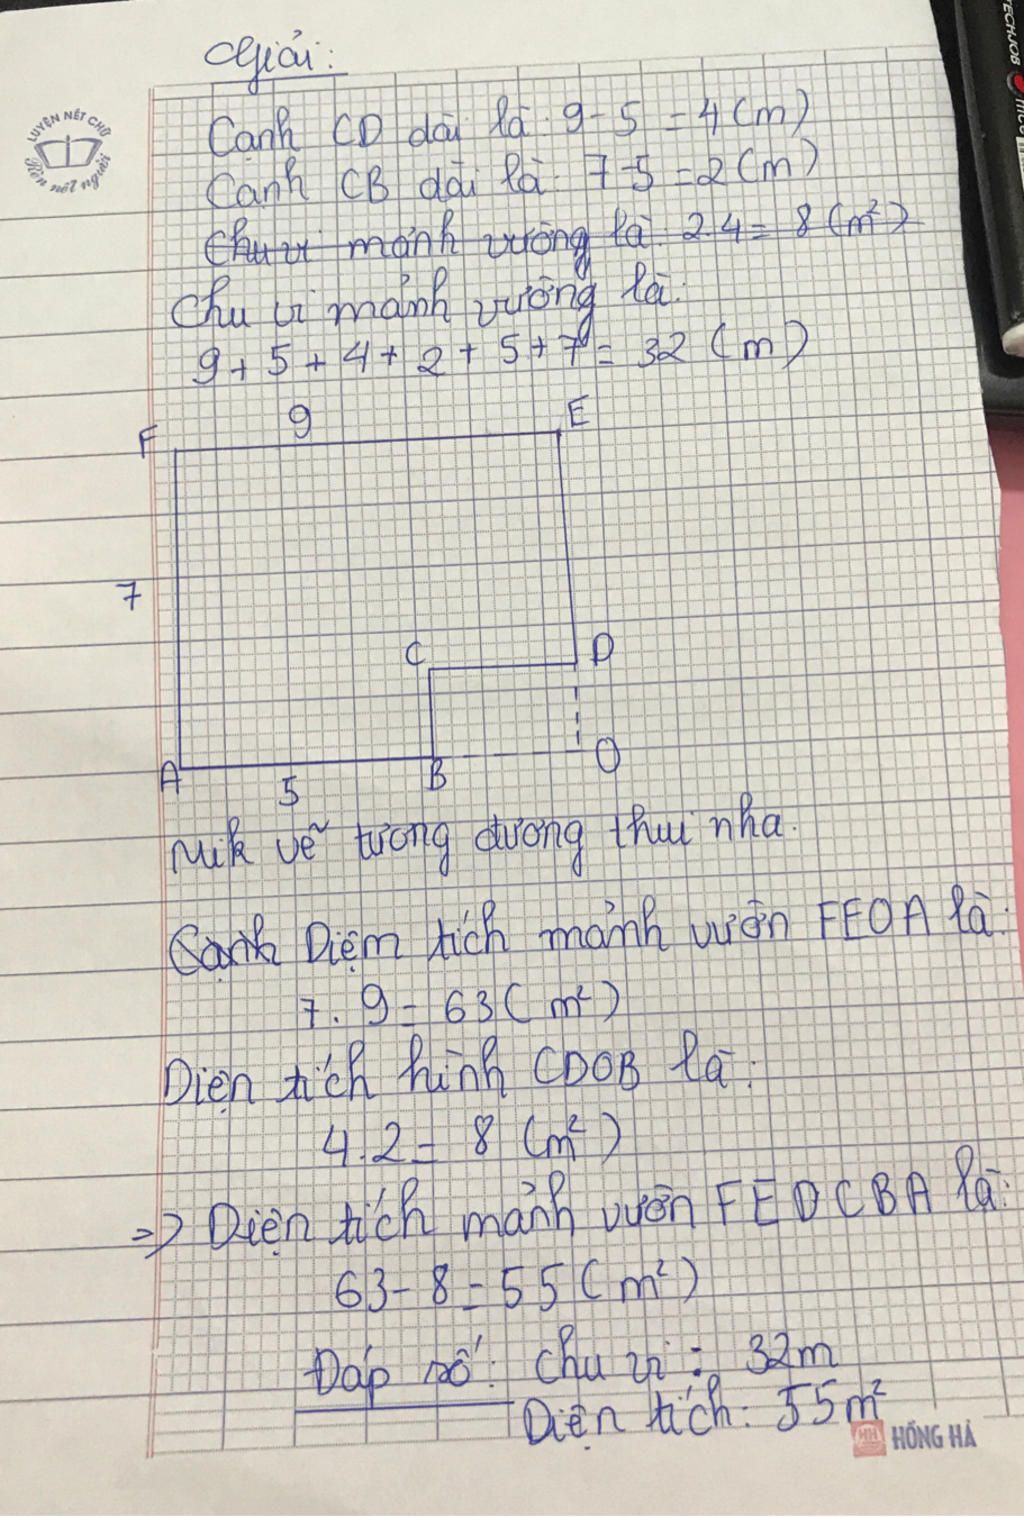 Giải:
LUYỆN NÉT CHỮ
Rèn nết người
Cạnh CD dài là: 9 - 5 = 4 (m)
Cạnh CB dài là: 7 - 5 = 2 (m)
Chu vi mảnh vường là: 2.4 = 8 (m²)
Chu vi mảnh vường là:
9 + 5 + 4 + 2 + 5 + 7 = 32 (m)
F 9 E
7
C D
A 5 B O
Mik vẽ tương đương thui nha.
Cạnh Diệm tích mảnh vườn FEOA là:
7. 9 = 63 (m²)
Diện tích hình CDOB là:
4.2 = 8 (m²)
=> Diện tích mảnh vườn FEDCBA là:
63 - 8 = 55 (m²)
Đáp số: Chu vi: 32m
Diện tích: 55m²
HH HỒNG HÀ